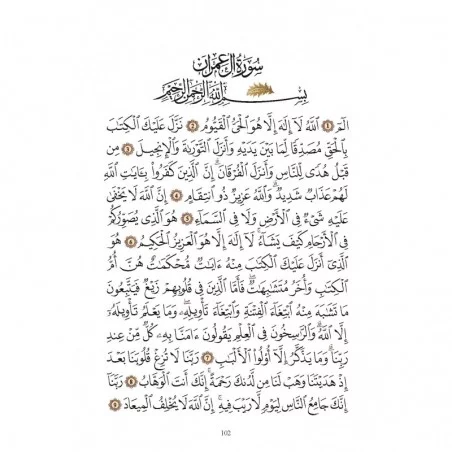 سورة آل عمران
بسم الله الرحمن الرحيم
الٓمٓ ١ ٱللَّهُ لَآ إِلَٰهَ إِلَّا هُوَ ٱلْحَىُّ ٱلْقَيُّومُ ٢ نَزَّلَ عَلَيْكَ ٱلْكِتَٰبَ
بِٱلْحَقِّ مُصَدِّقًا لِّمَا بَيْنَ يَدَيْهِ وَأَنزَلَ ٱلتَّوْرَىٰةَ وَٱلْإِنجِيلَ ٣ مِن
قَبْلُ هُدًى لِّلنَّاسِ وَأَنزَلَ ٱلْفُرْقَانَ إِنَّ ٱلَّذِينَ كَفَرُوا۟ بِـَٔايَٰتِ ٱللَّهِ
لَهُمْ عَذَابٌ شَدِيدٌ وَٱللَّهُ عَزِيزٌ ذُو ٱنتِقَامٍ ٤ إِنَّ ٱللَّهَ لَا يَخْفَىٰ
عَلَيْهِ شَىْءٌ فِى ٱلْأَرْضِ وَلَا فِى ٱلسَّمَآءِ ٥ هُوَ ٱلَّذِى يُصَوِّرُكُمْ
فِى ٱلْأَرْحَامِ كَيْفَ يَشَآءُ لَآ إِلَٰهَ إِلَّا هُوَ ٱلْعَزِيزُ ٱلْحَكِيمُ ٦ هُوَ
ٱلَّذِىٓ أَنزَلَ عَلَيْكَ ٱلْكِتَٰبَ مِنْهُ ءَايَٰتٌ مُّحْكَمَٰتٌ هُنَّ أُمُّ
ٱلْكِتَٰبِ وَأُخَرُ مُتَشَٰبِهَٰتٌ فَأَمَّا ٱلَّذِينَ فِى قُلُوبِهِمْ زَيْغٌ فَيَتَّبِعُونَ
مَا تَشَٰبَهَ مِنْهُ ٱبْتِغَآءَ ٱلْفِتْنَةِ وَٱبْتِغَآءَ تَأْوِيلِهِۦ وَمَا يَعْلَمُ تَأْوِيلَهُۥٓ
إِلَّا ٱللَّهُ وَٱلرَّٰسِخُونَ فِى ٱلْعِلْمِ يَقُولُونَ ءَامَنَّا بِهِۦ كُلٌّ مِّنْ عِندِ
رَبِّنَا وَمَا يَذَّكَّرُ إِلَّآ أُو۟لُوا۟ ٱلْأَلْبَٰبِ ٧ رَبَّنَا لَا تُزِغْ قُلُوبَنَا بَعْدَ
إِذْ هَدَيْتَنَا وَهَبْ لَنَا مِن لَّدُنكَ رَحْمَةً إِنَّكَ أَنتَ ٱلْوَهَّابُ ٨ رَبَّنَآ
إِنَّكَ جَامِعُ ٱلنَّاسِ لِيَوْمٍ لَّا رَيْبَ فِيهِ إِنَّ ٱللَّهَ لَا يُخْلِفُ ٱلْمِيعَادَ ٩
102